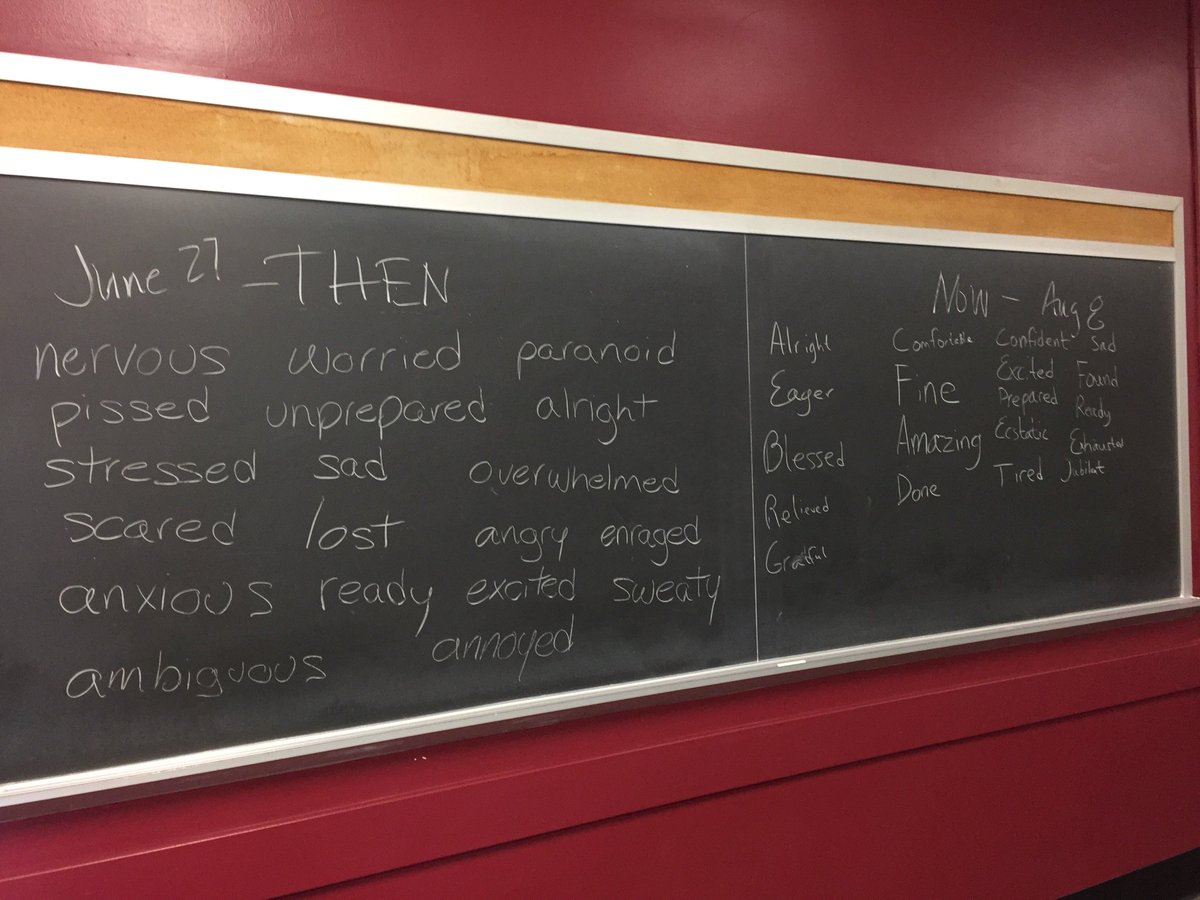 June 27 - THEN
nervous worried paranoid
pissed unprepared alright
stressed sad overwhelmed
scared lost angry enraged
anxious ready excited sweaty
ambiguous annoyed
Now - Aug 8
Alright
Eager
Blessed
Relieved
Grateful
Comfortable
Fine
Amazing
Done
Confident
Excited
Prepared
Ecstatic
Tired
Sad
Found
Ready
Exhausted
Jubilat